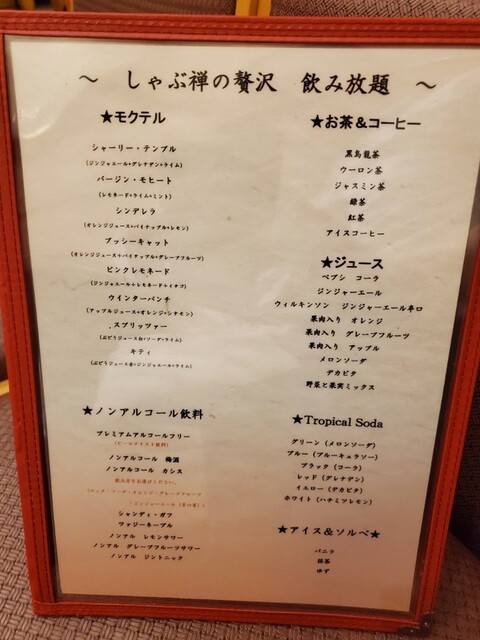 ～ しゃぶ禅の贅沢 飲み放題 ～
★モクテル
シャーリー・テンプル
(ジンジャエール+グレナデン+ライム)
バージン・モヒート
(レモネード+ライム+ミント)
シンデレラ
(オレンジジュース+パイナップル+レモン)
プッシーキャット
(オレンジジュース+パイナップル+グレープフルーツ)
ピンクレモネード
(ジンジャエール+レモネード+イチゴ)
ウインターパンチ
(アップルジュース+オレンジ+シナモン)
スプリッツァー
(ぶどうジュース白+ソーダ+ライム)
キティ
(ぶどうジュース赤+ジンジャエール+ライム)
★ノンアルコール飲料
プレミアムアルコールフリー
(ビールテイスト飲料)
ノンアルコール 梅酒
ノンアルコール カシス
飲み方をお選びください。
(ロック・ソーダ・オレンジ・グレープフルーツ
シャンディ・ガフ
ファジーネーブル
ノンアル レモンサワー
ノンアル グレープフルーツサワー
ノンアル ジントニック
★お茶＆コーヒー
黒烏龍茶
ウーロン茶
ジャスミン茶
緑茶
紅茶
アイスコーヒー
★ジュース
ペプシ コーラ
ジンジャーエール
ウィルキンソン ジンジャーエール辛口
果肉入り オレンジ
果肉入り グレープフルーツ
果肉入り アップル
メロンソーダ
デカビタ
野菜と果実ミックス
★Tropical Soda
グリーン (メロンソーダ)
ブルー (ブルーキュラソー)
ブラック (コーラ)
レッド (グレナデン)
イエロー (デカビタ)
ホワイト (ハチミツレモン)
★アイス＆ソルベ★
バニラ
抹茶
ゆず